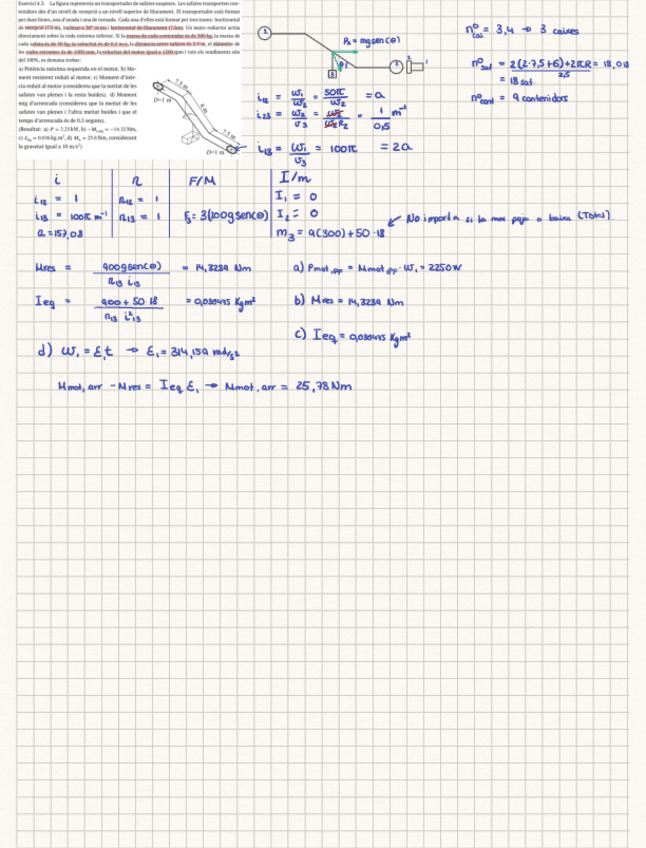 Exercici 4.3. La figura representa un transportador de safates suspeses. Les safates transporten con-
tenidors des d'un nivell de recepció a un nivell superior de lliurament. El transportador està format
per dues línies, una d'anada i una de tornada. Cada una d'elles està format per tres trams: horitzontal
de recepció (7.5 m), inclinat a 30º (6 m) i horitzontal de lliurament (7.5m). Un moto-reductor actúa
directament sobre la roda extrema inferior. Si la massa de cada contenidor és de 300 kg, la massa de
cada safata és de 50 kg, la velocitat és de 0.5 m/s, la distància entre safates és 2.0 m, el diàmetre de
les rodes extremes és de 1000 mm, la velocitat del motor igual a 1500 rpm i tots els rendiments són
del 100%, es demana trobar:
a) Potència màxima requerida en el motor. b) Mo-
ment resistent reduït al motor. c) Moment d'inèr-
cia reduït al motor (considereu que la meitat de les
safates van plenes i la resta buides). d) Moment
mig d'arrencada (considereu que la meitat de les
safates van plenes i l'altra meitat buides i que el
temps d'arrencada és de 0.5 segons).
D=1 m
7.5 m
6 m
7.5 m
D=1 m
1
2
3
P₃ = mg sen(θ)
nº cai = 3,4 → 3 caixes
nº saf = 2(2·7,5+6)+2πR / 2,5 = 18,0
= 18 saf.
nº cont = 9 contenidors
i₁₂ = ω₁/ω₂ = 50π/ω₂ = a
i₂₃ = ω₂/v₃ = ω₂/ω₂R₂ = 1/0,5 m⁻¹
i₁₃ = ω₁/v₃ = 100π = 2a
i η F/M I/m
i₁₂ = 1 η₁₂ = 1 I₁ = 0
i₁₃ = 100π m⁻¹ η₁₃ = 1 F₃ = 3(300g sen(θ)) I₂ = 0
a = 157,08 m₃ = 9(300) + 50·18 ↙ No importa si la mas puja o baixa (Total).
Mres = 900g sen(θ) / η₁₃ i₁₃ = 14,3239 Nm
a) Pmot,pf = Mmot,pf · ω₁ = 2250W
Ieq = 900 + 50·18 / η₁₃ i²₁₃ = 0,036475 Kgm²
b) Mres = 14,3239 Nm
c) Ieq = 0,036475 Kgm²
d) ω₁ = ε₁t → ε₁ = 314,159 rad/s²
Mmot,arr − Mres = Ieq ε₁ → Mmot,arr = 25,78 Nm